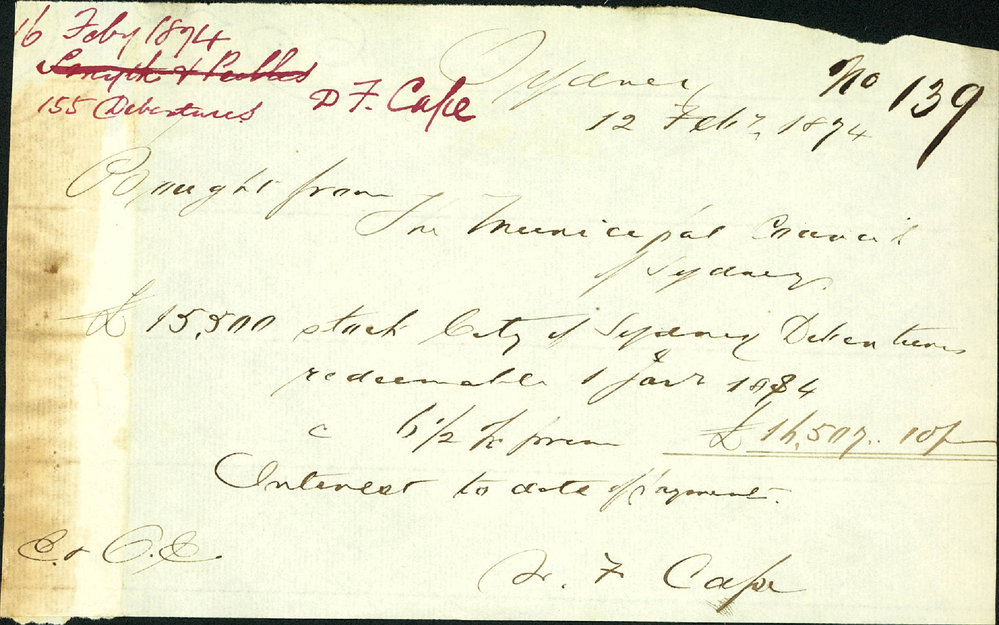 16 Feby 1874
155 Debentures D F. Cape
Sydney No 139
12 Feby 1874
Bought from
The Municipal Council
of Sydney
£ 15,500 stock City of Sydney Debentures
redeemable 1 Jany 1884
a 6 1/2 % prem £ 16,507.. 10/-
Interest to date of payment.
E. & O.E.
F Cape